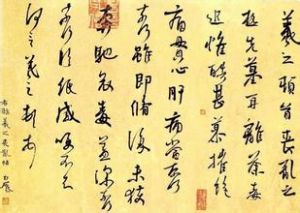 羲之頓首喪亂之
極先墓再離荼毒
追惟酷甚號慕摧絕
痛貫心肝痛當奈何
奈何雖即脩復未獲
奔馳哀毒益深奈何
奈何臨紙感哽不知
何言羲之頓首頓首
羲之喪亂帖